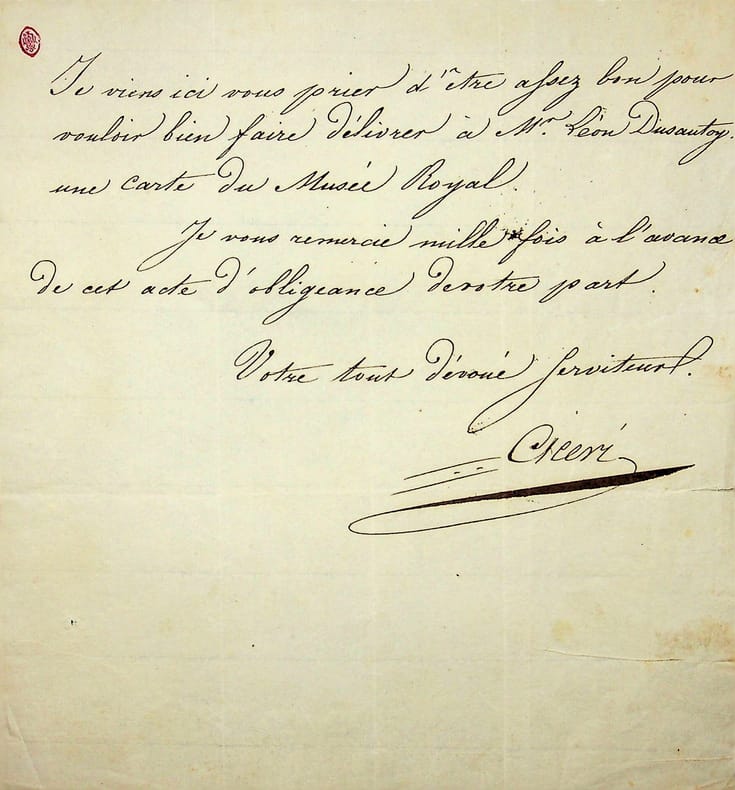 Je viens ici vous prier d'être assez bon pour
vouloir bien faire délivrer à Mr. Léon Dusautoy.
une carte du Musée Royal.
Je vous remercie mille fois à l'avance
de cet acte d'obligeance de votre part.
Votre tout dévoué Serviteur.
Ciceri